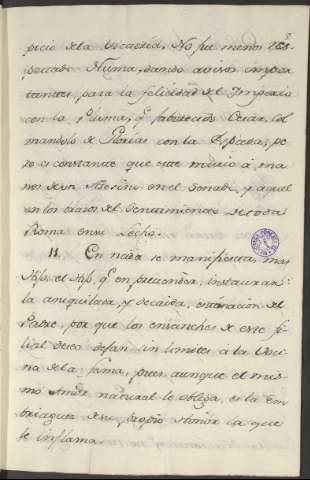 picio de la Voracidad. No fue menos res-
pectado Numa, dando avisos impor-
tantes, para la felicidad del Imperio
con la Pluma, q.e fabulosos Cesar, col
mandolo de Glorias con la Espada, pe-
ro es constante que este murio á ma
nos de un Asesino en el Senado, y aquel
en los brazos del Sentimiento de toda
Roma en su Lecho.
11. En nada se manifiesta mas
Hijo, el Hijo, q.e en pretender, instaurar
la aniquilada, y decaida, estimacion del
Padre, por que los ensanches de este fi-
lial deseo defan sin limites á la Voci
na de la fama, pues aunque el mis-
mo Amor natural le obliga, es la Em
briaguez de su propio Honor la que
le inflama.